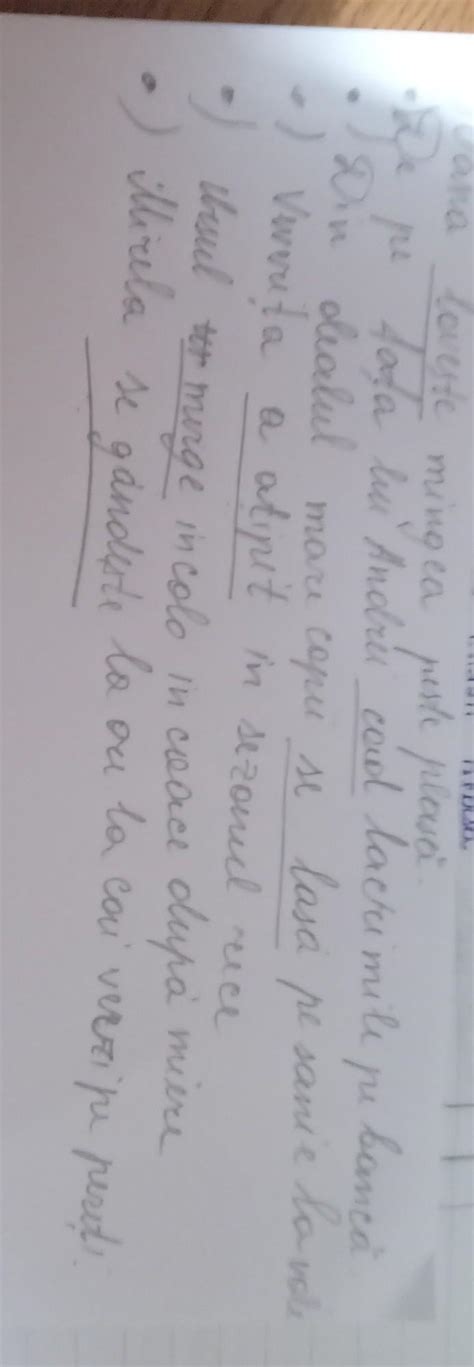 loveste mingea peste plasă.
•) De pe fața lui Andrei cad lacrimile pe bancă.
•) Din dealul mare copii se lasă pe sanie la vale
•) Vivrița a ațipit in sezonul rece
•) Ursul merge incolo in coace după miere
•) Mirela se gândește la ou la cai verzi pe pereți.